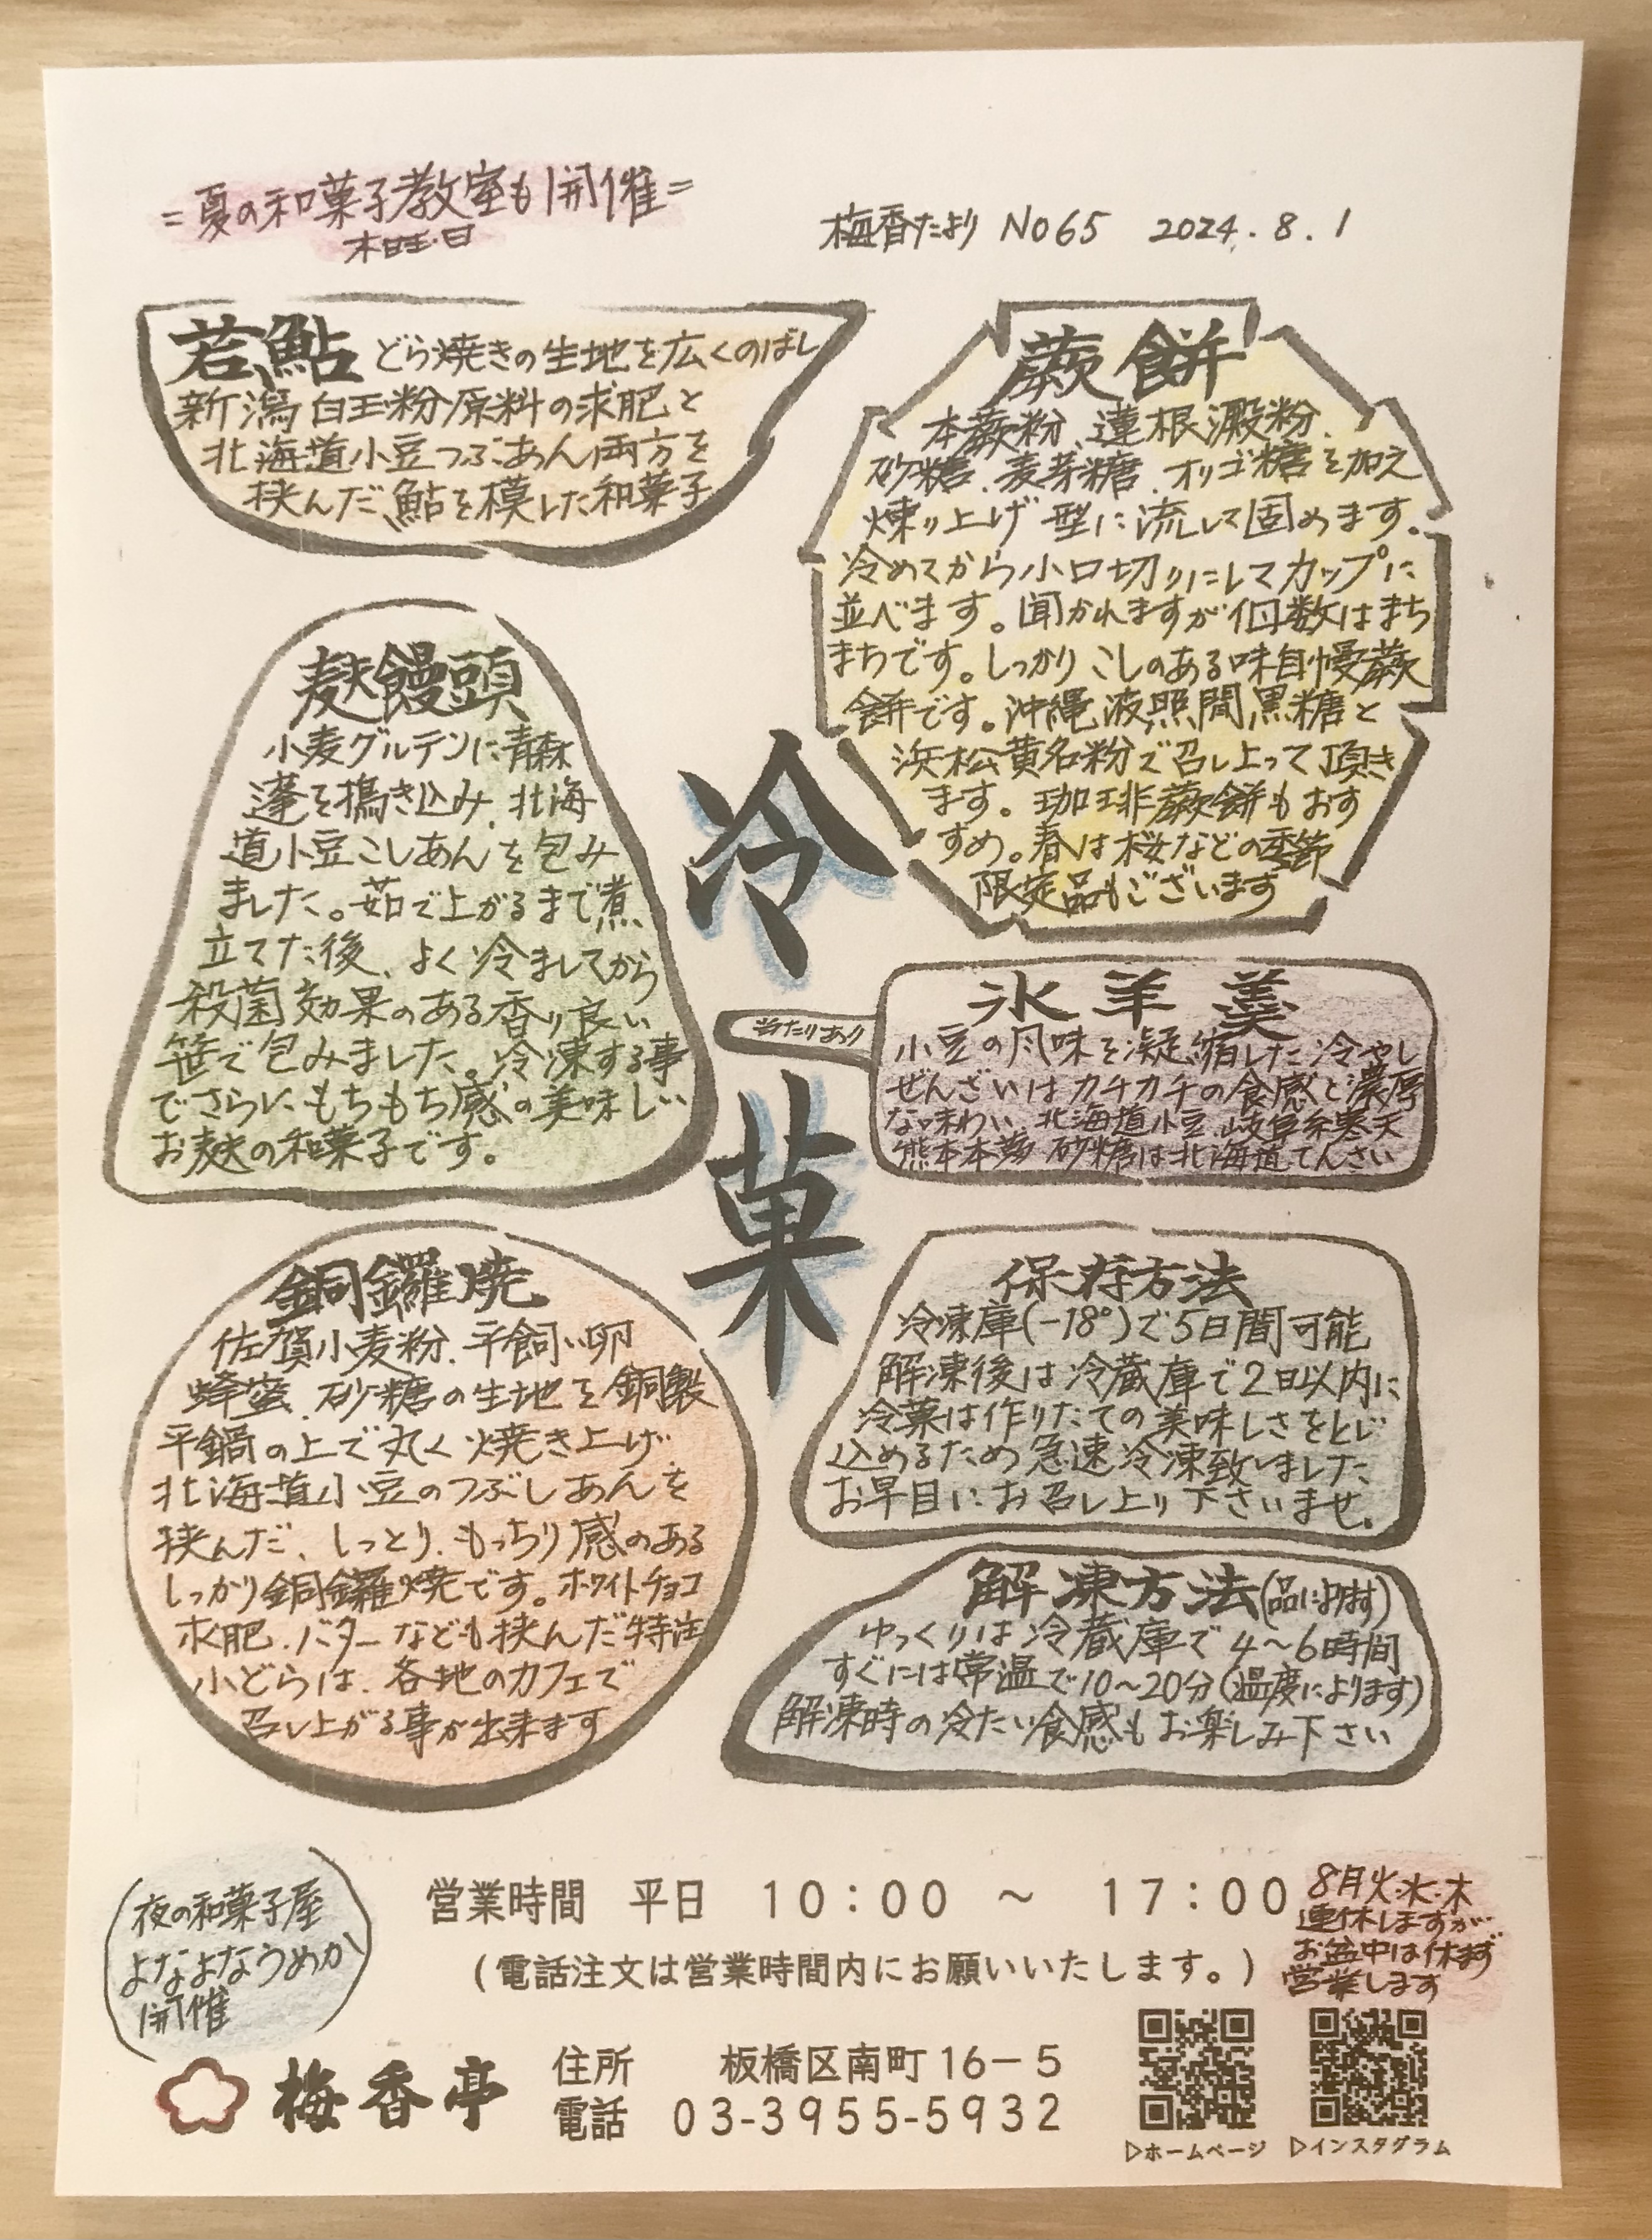 =夏の和菓子教室も開催=
木曜・日
梅香たより No65 2024.8.1
若鮎 どら焼きの生地を広くのばし
新潟白玉粉原料の求肥と
北海道小豆つぶあん両方を
挟んだ、鮎を模した和菓子
蕨餅
本蕨粉、蓮根澱粉、
砂糖、麦芽糖、オリゴ糖を加え
煉り上げ型に流して固めます。
冷めてから小口切りにしてカップに
並べます。聞かれますが個数はまち
まちです。しっかりこしのある味自慢蕨
餅です。沖縄波照間黒糖と
浜松黄名粉で召し上って頂き
ます。珈琲蕨餅もおす
すめ。春は桜などの季節
限定品もございます
麸饅頭
小麦グルテンに青森
蓬を搗き込み、北海
道小豆こしあんを包み
ました。茹で上がるまで煮
立てた後、よく冷ましてから
殺菌効果のある香り良い
笹で包みました。冷凍する事
でさらにもちもち感の美味しい
お麸の和菓子です。
冷菓
当たりあり
氷羊羹
小豆の風味を凝縮した冷やし
ぜんざいはカチカチの食感と濃厚
な味わい、北海道小豆、岐阜糸寒天
熊本本葛 砂糖は北海道てんさい
銅鑼焼
佐賀小麦粉、平飼い卵
蜂蜜、砂糖の生地を銅製
平鍋の上で丸く焼き上げ
北海道小豆のつぶしあんを
挟んだ、しっとり、もっちり感のある
しっかり銅鑼焼です。ホワイトチョコ
求肥、バターなども挟んだ特注
小どらは、各地のカフェで
召し上がる事が出来ます
保存方法
冷凍庫(-18°)で5日間可能
解凍後は冷蔵庫で2日以内に
冷菓は作りたての美味しさをとじ
込めるため急速冷凍致しました
お早目にお召し上り下さいませ。
解凍方法(品によります)
ゆっくりは冷蔵庫で4〜6時間
すぐには常温で10〜20分(温度によります)
解凍時の冷たい食感もお楽しみ下さい
夜の和菓子屋
よなよなうめか
開催
営業時間 平日 10：00 ～ 17：00
(電話注文は営業時間内にお願いいたします。)
8月火・水・木
連休しますが
お盆中は休まず
営業します
梅香亭
住所 板橋区南町16－5
電話 03-3955-5932
▷ホームページ ▷インスタグラム